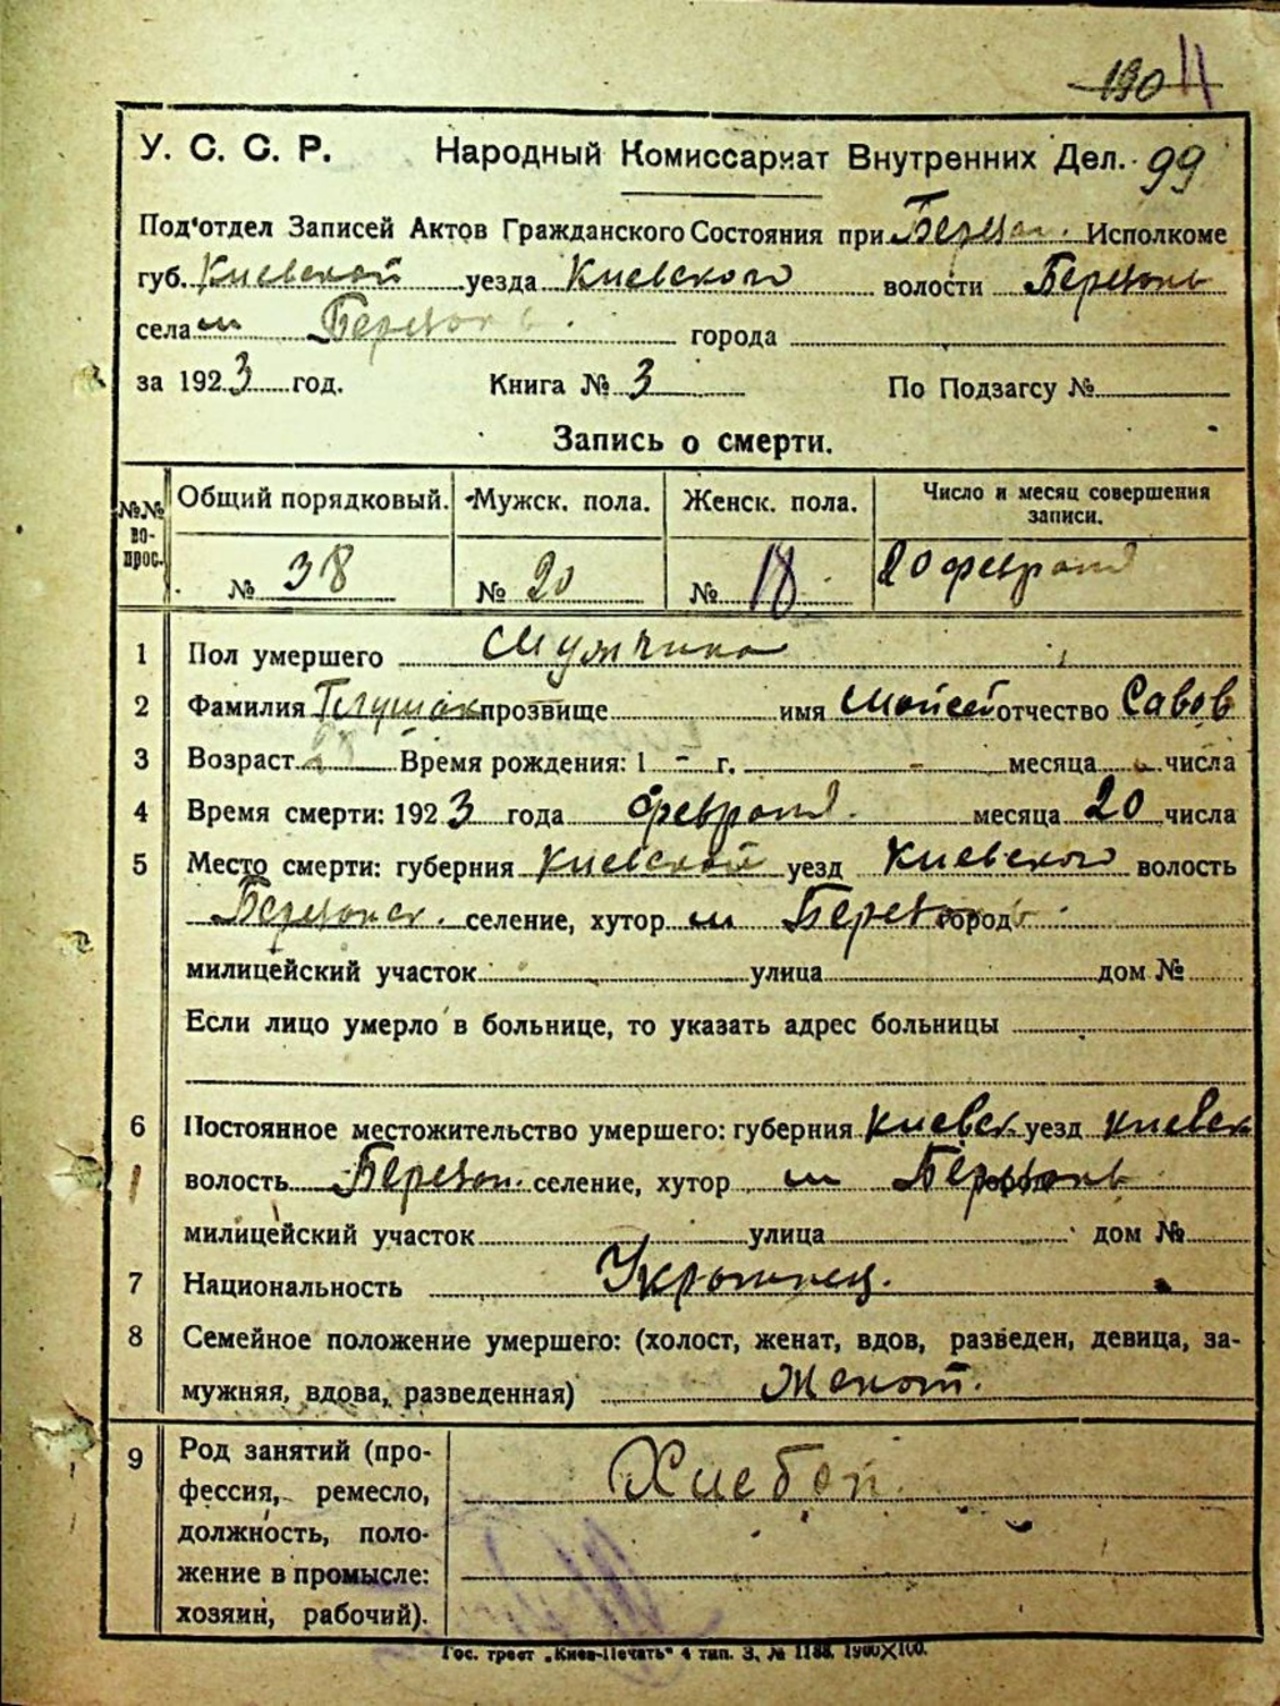 190 11
У. С. С. Р. Народный Комиссариат Внутренних Дел. 99
Под'отдел Записей Актов Гражданского Состояния при Березан. Исполкоме
губ. Киевской уезда Киевского волости Березань
села м Березань города
за 1923 год. Книга № 3 По Подзагсу №
Запись о смерти.
№№ во- прос. Общий порядковый. Мужск. пола. Женск. пола. Число и месяц совершения записи.
№ 38 № 20 № 18 20 февраля
1 Пол умершего Мужчина
2 Фамилия Глушак прозвище имя Мойсей отчество Савов
3 Возраст Время рождения: 1 - г. - месяца числа
4 Время смерти: 1923 года февраля месяца 20 числа
5 Место смерти: губерния Киевской уезд Киевского волость
Березанск. селение, хутор м Березань город
милицейский участок улица дом №
Если лицо умерло в больнице, то указать адрес больницы
6 Постоянное местожительство умершего: губерния Киевск уезд Киевск
волость Березан. селение, хутор м Березань
милицейский участок улица дом №
7 Национальность Украинец.
8 Семейное положение умершего: (холост, женат, вдов, разведен, девица, за-
мужняя, вдова, разведенная) Женат.
9 Род занятий (про-
фессия, ремесло,
должность, поло-
жение в промысле:
хозяин, рабочий).
Хлебоп.
Гос. трест „Киев-Печать" 4 тип. З. № 1188.